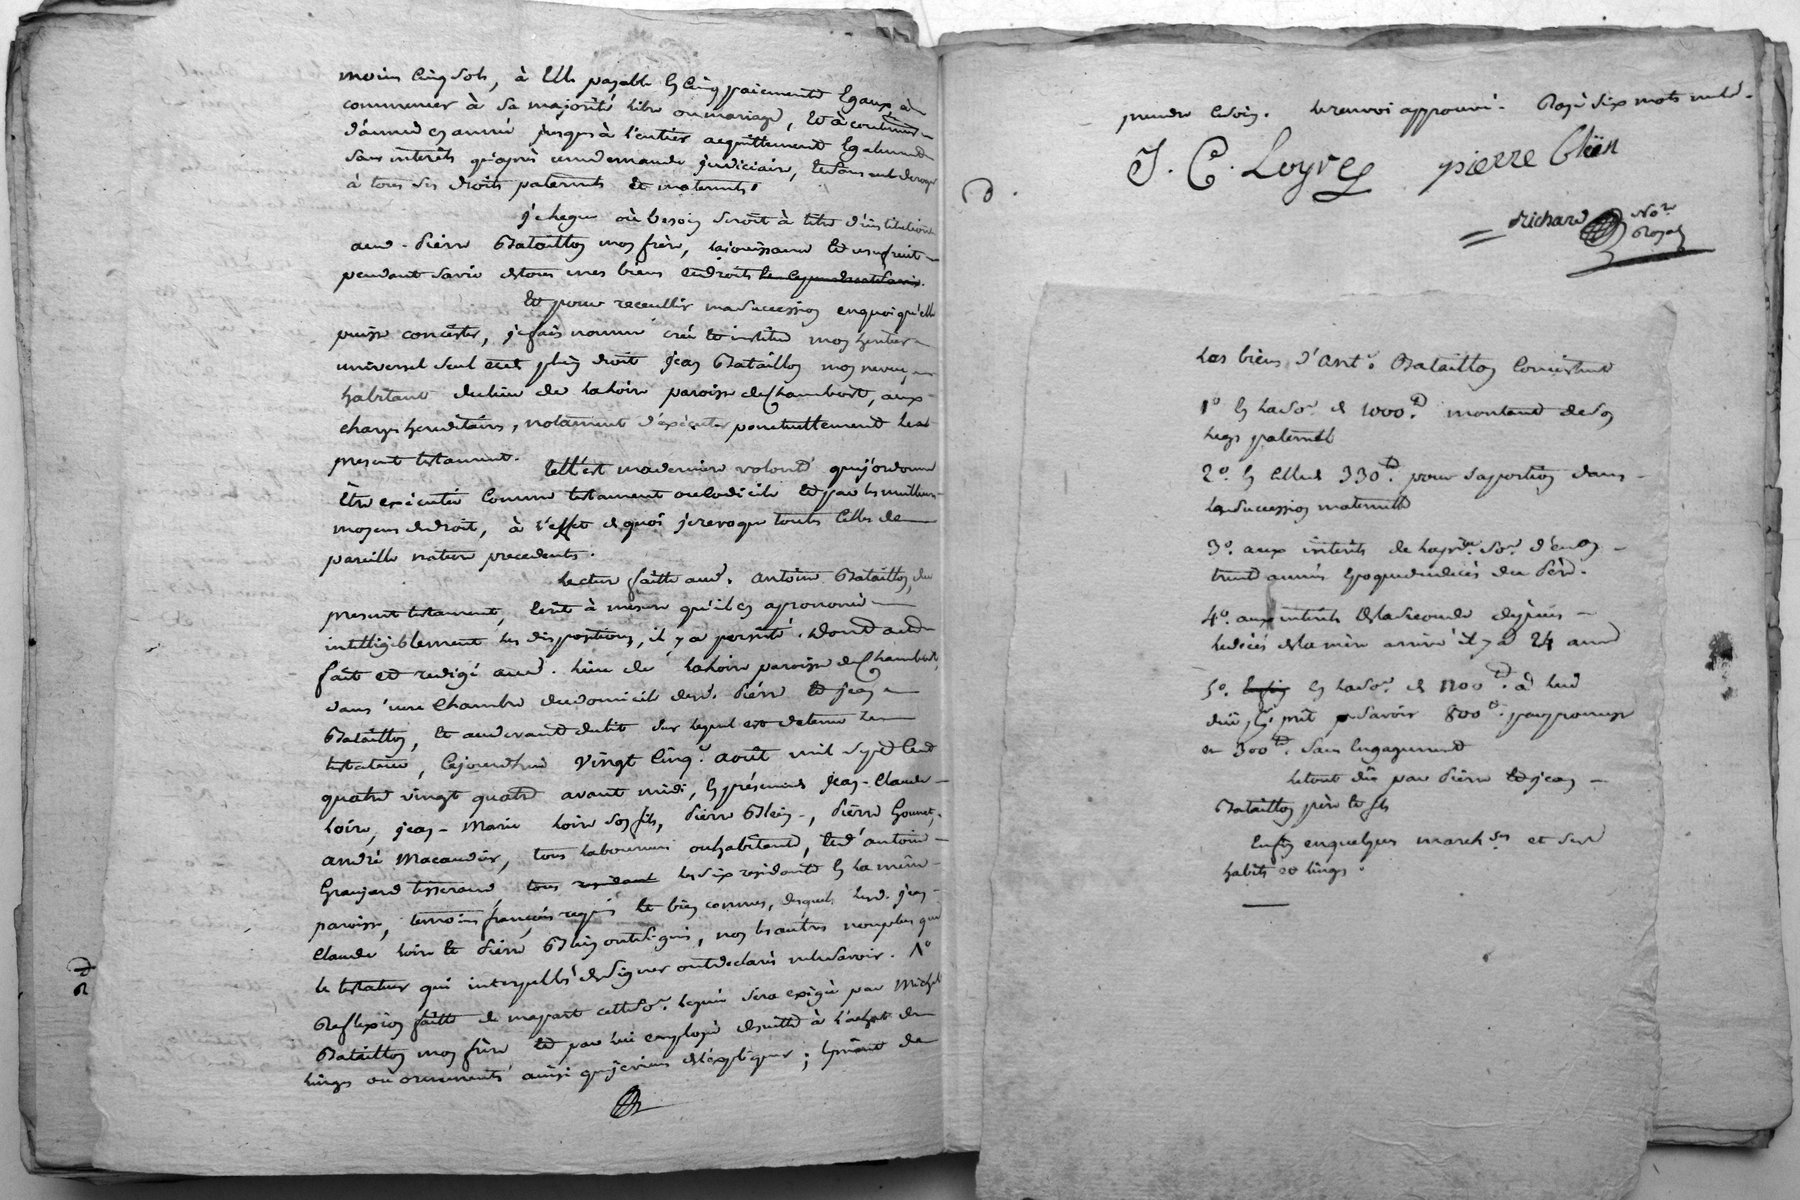 moins cinq sols, à Elle payable en cinq paiements Egaux à
commencer à sa majorité libre ou mariage, et à continuer
d'année en année jusques à l'entier acquittement Egalement
sans interêts qu'après une demande judiciaire, le
à tous ses droits paternels et maternels.
je legue où besoin seroit à titre d'institution
aud. Pierre Bataillon mon frère, la jouissance et usufruit
pendant sa vie de tous mes biens et droits
Et pour recueillir ma succession en quoi qu'elle
puisse consister, je fais nomme créé et institue mon heritier
universel seul et de plein droit jean Bataillon mon neveu
habitant du lieu de la hoire paroisse de Chambost, aux
charges hereditaires, notament d'exécuter ponctuellement le
present testament. telle est ma derniere volonté que j'ordonne
être exécutée comme testament ou codicile et par les meilleurs
moyens de droit, à l'effet de quoi je revoque toutes celles de
pareille nature precedentes.
Lecture faitte aud. antoine Bataillon du
present testament, écrit à mesure qu'il en a prononcé
intelligiblement les dispositions, il y a persisté. Dont acte
fait et redigé aud. lieu de la hoire paroisse de Chambost,
dans une chambre du domicile desd. Pierre et jean
Bataillon, et au devant du lit sur lequel est detenu le
testateur, cejourdhui vingt cinq. août mil sept cent
quatre vingt quatre avant midi, en présence de jean-Claude
loire, jean-Marie loire son fils, Pierre Glein, Pierre Gonnet,
andré Macaudier, tous laboureurs ou habitants, et d'antoine
Granjard tisserand tous residant les six residants en la même
paroisse, temoins français requis et bien connus, desquels lesd. jean
Claude loire et Pierre Glein ont signé, non les autres non plus que
le testateur qui interpellés de signer ont declaré ne le savoir. 1°
Reflexion faitte de ma part cette so.e leguée sera exigée par Michel
Bataillon mon frère et par lui employée de suitte à l'achat de
linges ou ornements ainsi que je viens de l'expliquer; le priant de
prendre ce soin. le renvoi approuvé. Rayé six mots nuls.
J. C. Loyre pierre Glein
Richard No.re
Royal
Les biens d'Ant.e Bataillon consistent
1° en la so.e de 1000.# montant de son
legs paternel
2° en celle de 330.# pour sa portion dans
la succession maternelle
3° aux interêts de la pre.re so.e d'env.on
trente années epoque du decès du Père.
4° aux interêts de la seconde depuis
le decès de la mère arrivé il y a 24 ans
5° Enfin en la so.e de 1100.# à lui
due
et 300.# sans engagement
le tout dû par Pierre et jean
Bataillon père et fils
Enfin en quelques march.ses et ses
habits et linges.